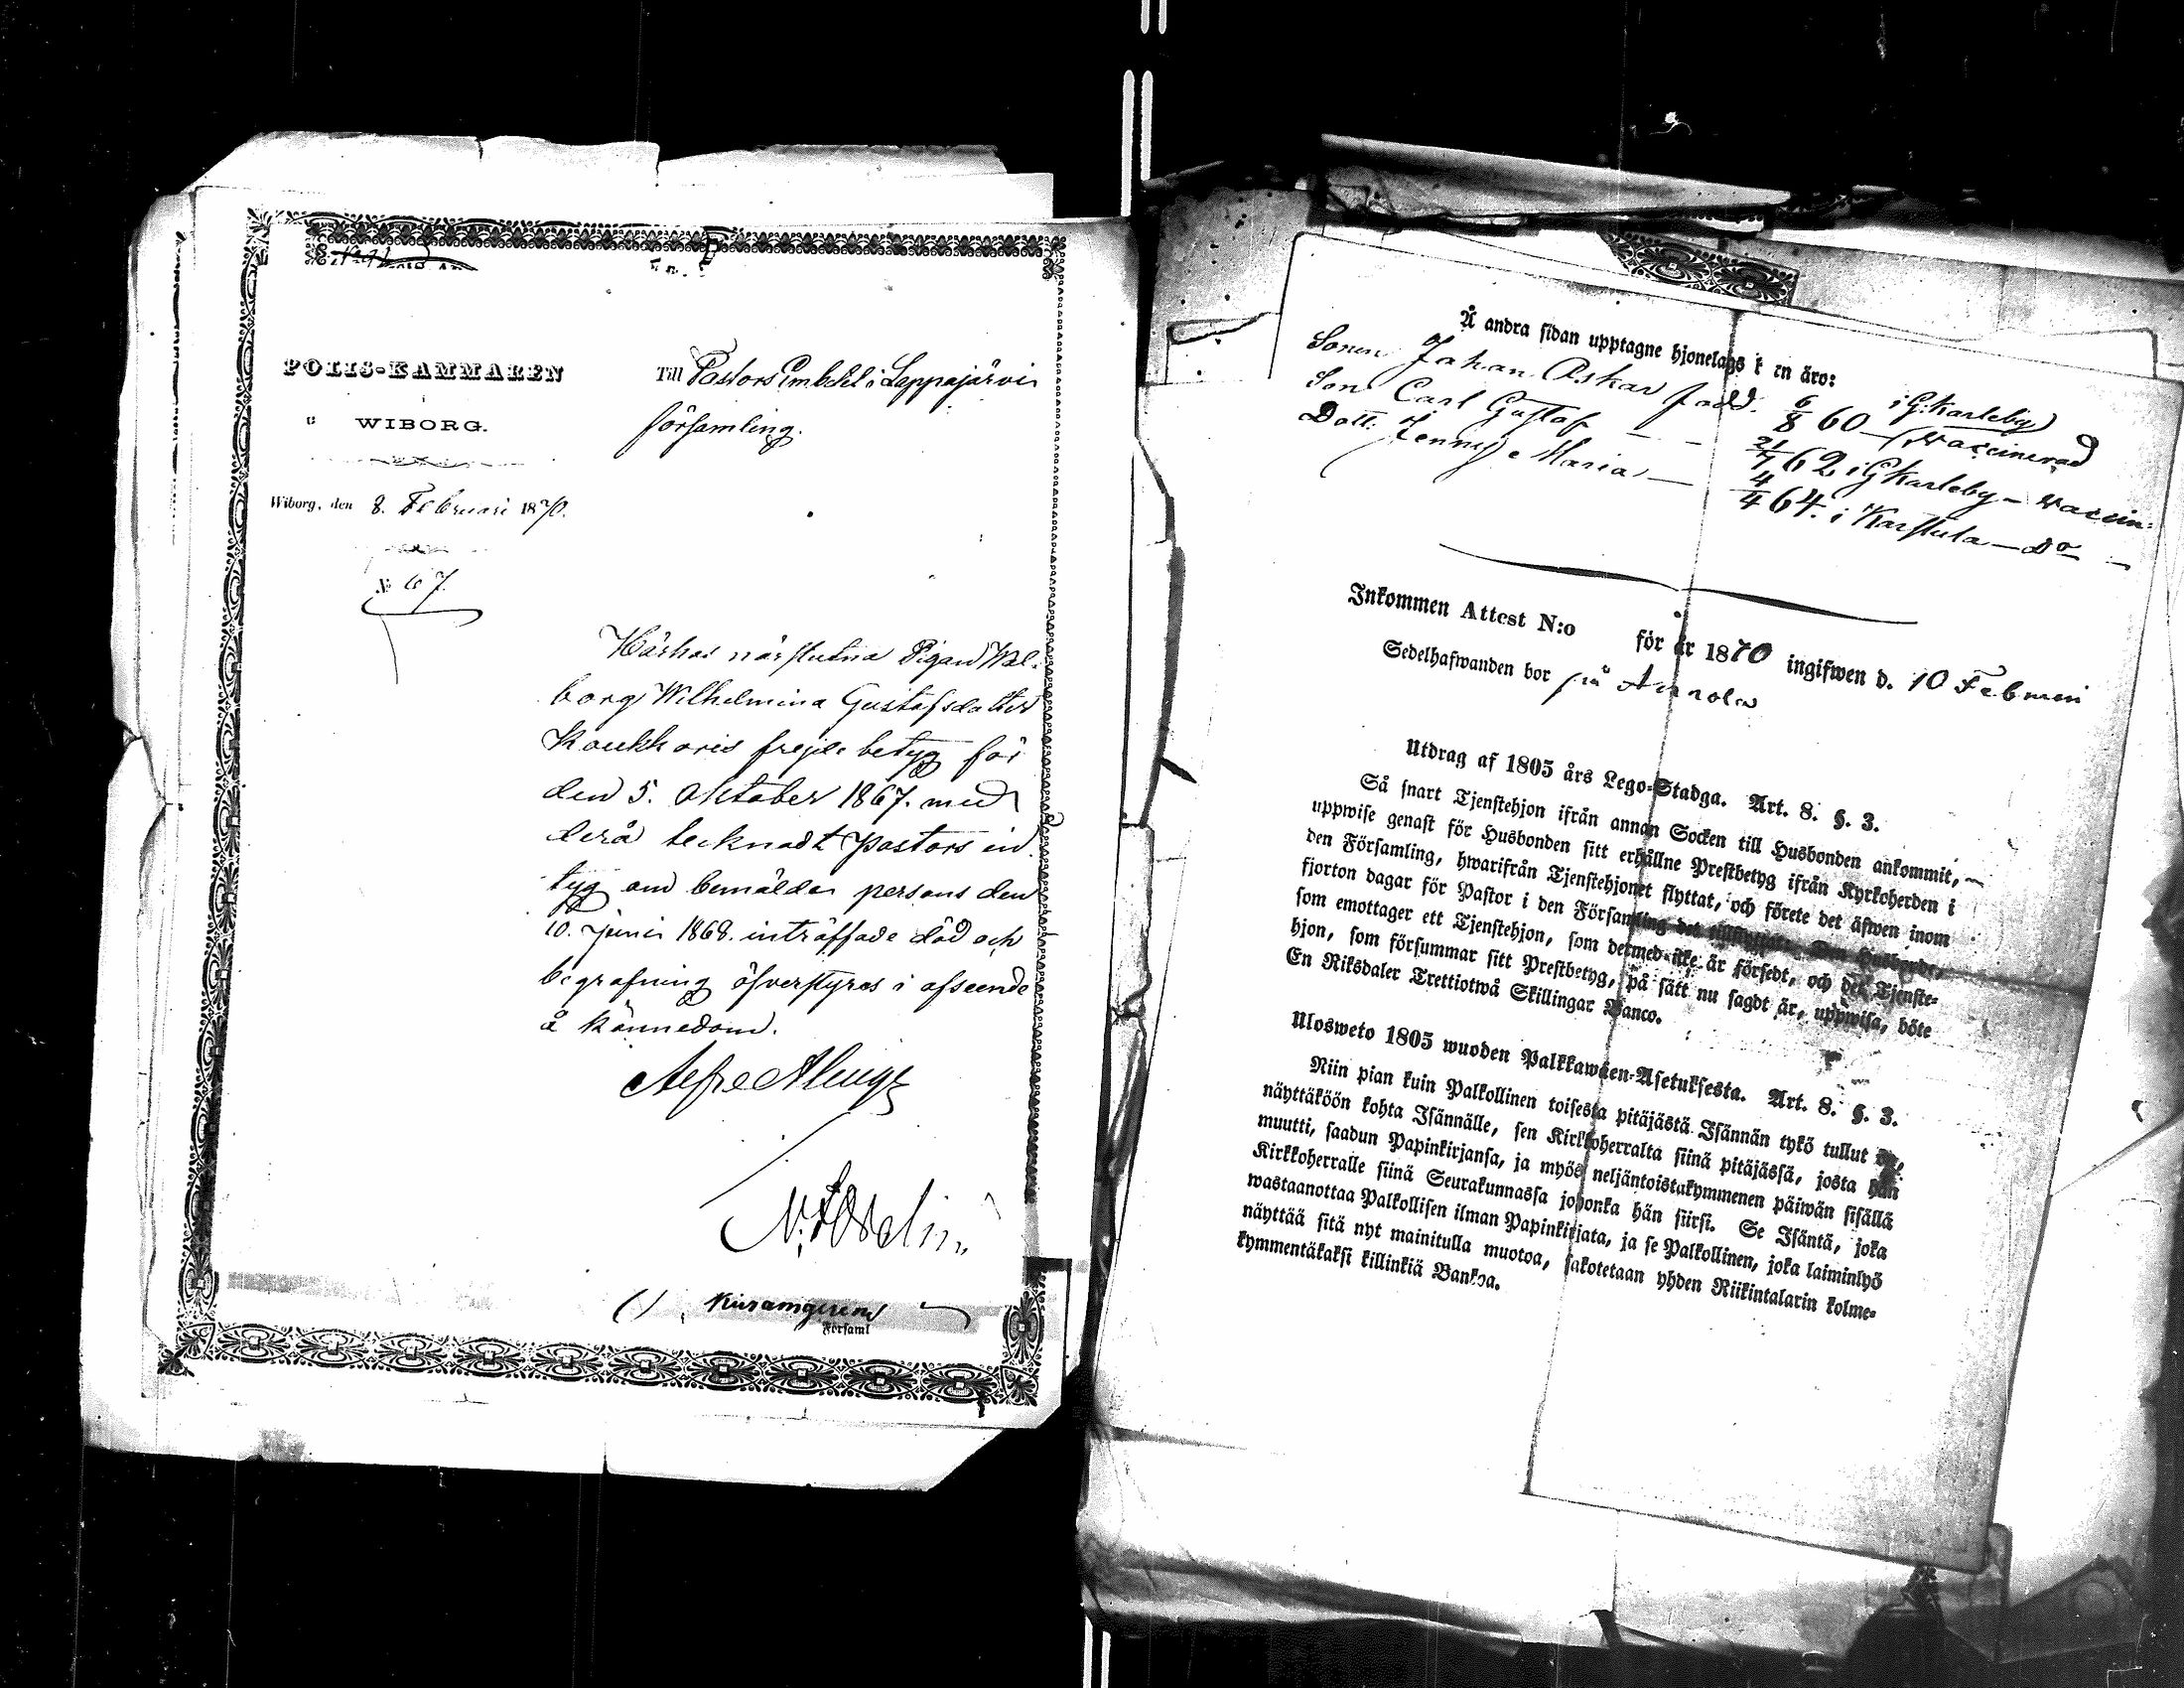 POLIS-KAMMAREN
WIBORG.
Wiborg, den 8. Februari 1870.
№ 67.
Till Pastors Embetet i Lappajärvi
församling.
Härhos närslutna Pigan Wal-
borg Wilhelmina Gustafsdotter
frejde betyg för
den 5. Oktober 1867. med
derå tecknadt Pastors in-
tyg om bemälda persons den
10. Juni 1868. inträffade död och
begrafning öfverstyres i afseende
å kännedom.
Församl
Å andra sidan upptagne hjonelags äro:
Sonen Johan Oskar född. 6/8 60 i G:Karleby vaccinerad
Son Carl Gustaf — — 21/7 62 i GKarleby — vaccin:
Dott. Jenny Maria — 4/4 64. i Karstula — do —
Inkommen Attest N:o för år 1870 ingifwen d. 10 Februari
Sedelhafwanden bor på
Utdrag af 1805 års Lego-Stadga. Art. 8. §. 3.
Så snart Tjenstehjon ifrån annan Socken till Husbonden ankommit,
uppwise genast för Husbonden sitt erhållne Prestbetyg ifrån Kyrkoherden i
den Församling, hwarifrån Tjenstehjonet flyttat, och förete det äfwen inom
fjorton dagar för Pastor i den Församling det
som emottager ett Tjenstehjon, som dermed icke är försedt, och det Tjenste-
hjon, som försummar sitt Prestbetyg, på sätt nu sagdt är, uppwisa, böte
En Riksdaler Trettiotwå Skillingar Banco.
Ulosweto 1805 wuoden Palkkawäen-Asetuksesta. Art. 8. §. 3.
Niin pian kuin Palkollinen toisesta pitäjästä Isännän tykö tullut
näyttäköön kohta Isännälle, sen Kirkkoherralta siinä pitäjässä, josta hän
muutti, saadun Papinkirjansa, ja myös neljäntoistakymmenen päiwän sisällä
Kirkkoherralle siinä Seurakunnassa johonka hän siirsi. Se Isäntä, joka
wastaanottaa Palkollisen ilman Papinkirjata, ja se Palkollinen, joka laiminlyö
näyttää sitä nyt mainitulla muotoa, sakotetaan yhden Riikintalarin kolme-
kymmentäkaksi killinkiä Bankoa.